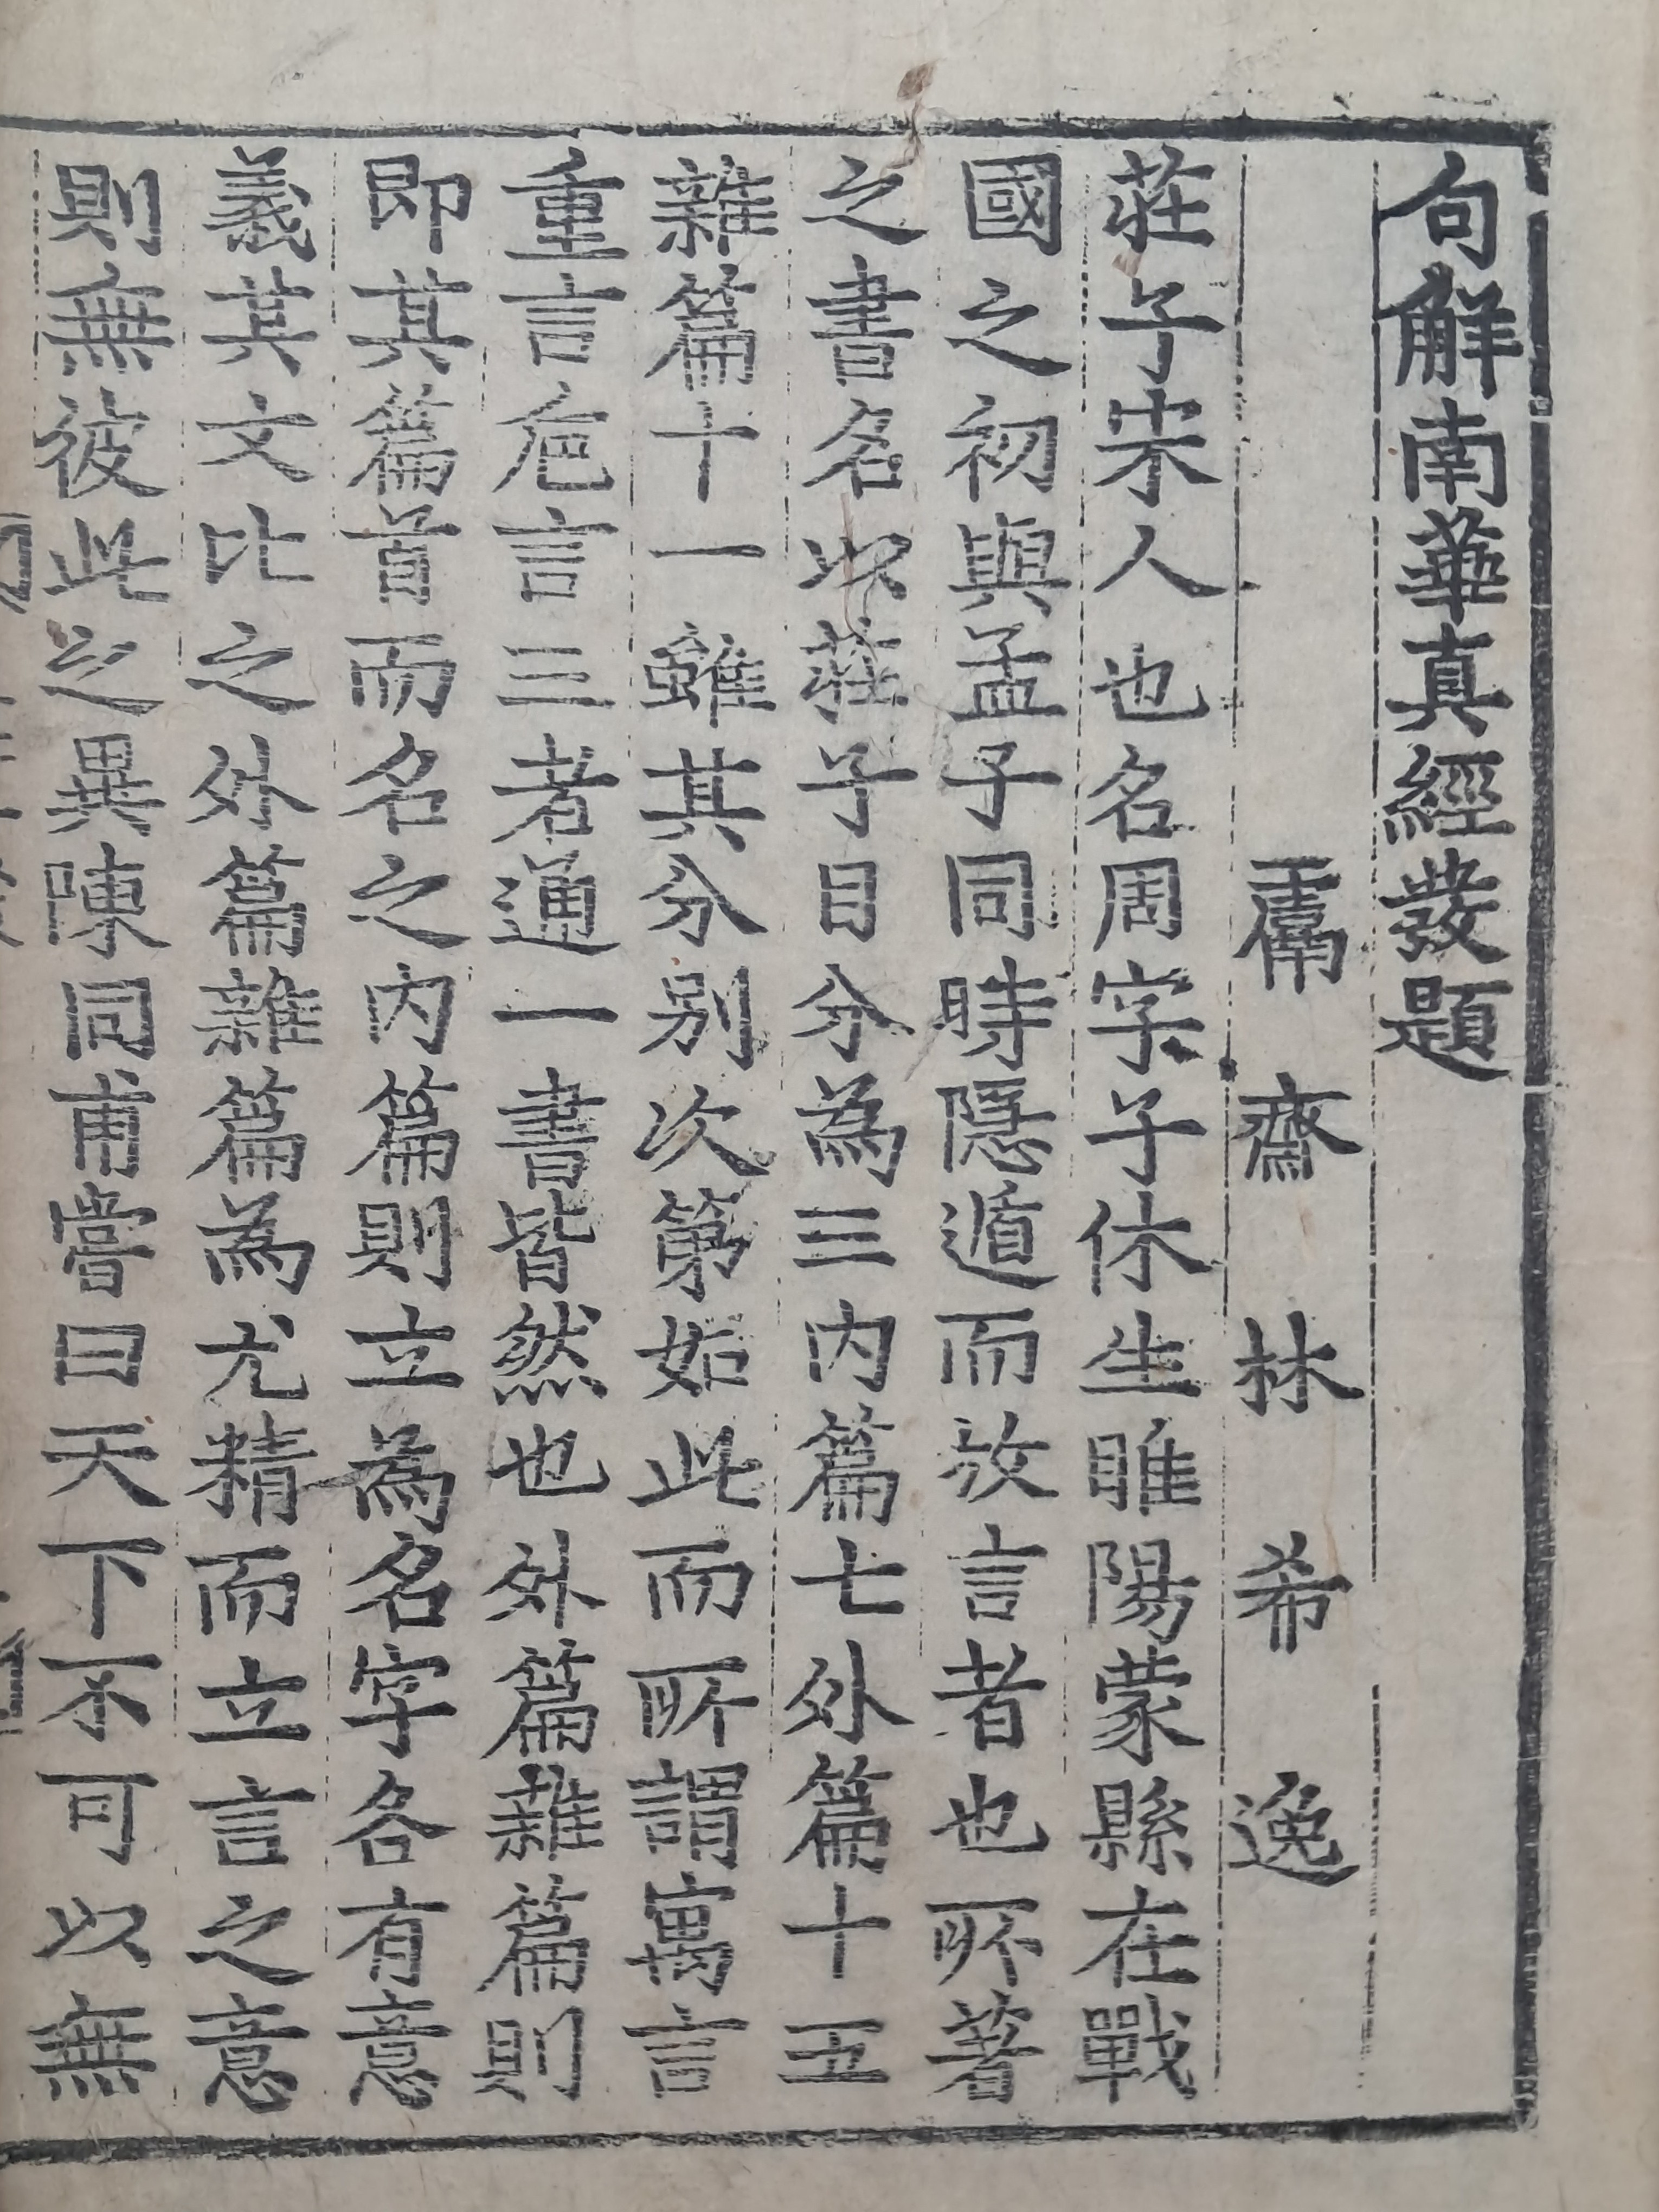 句解南華真經發題
鬳齋林希逸
莊子宋人也名周字子休生睢陽蒙縣在戰
國之初與孟子同時隱遁而放言者也所著
之書名以莊子自分為三內篇七外篇十五
雜篇十一雖其分別次第如此而所謂寓言
重言卮言三者通一書皆然也外篇雜篇則
即其篇首而名之內篇則立為名字各有意
義其文比之外篇雜篇為尤精而立言之意
則無彼此之異陳同甫嘗曰天下不可以無